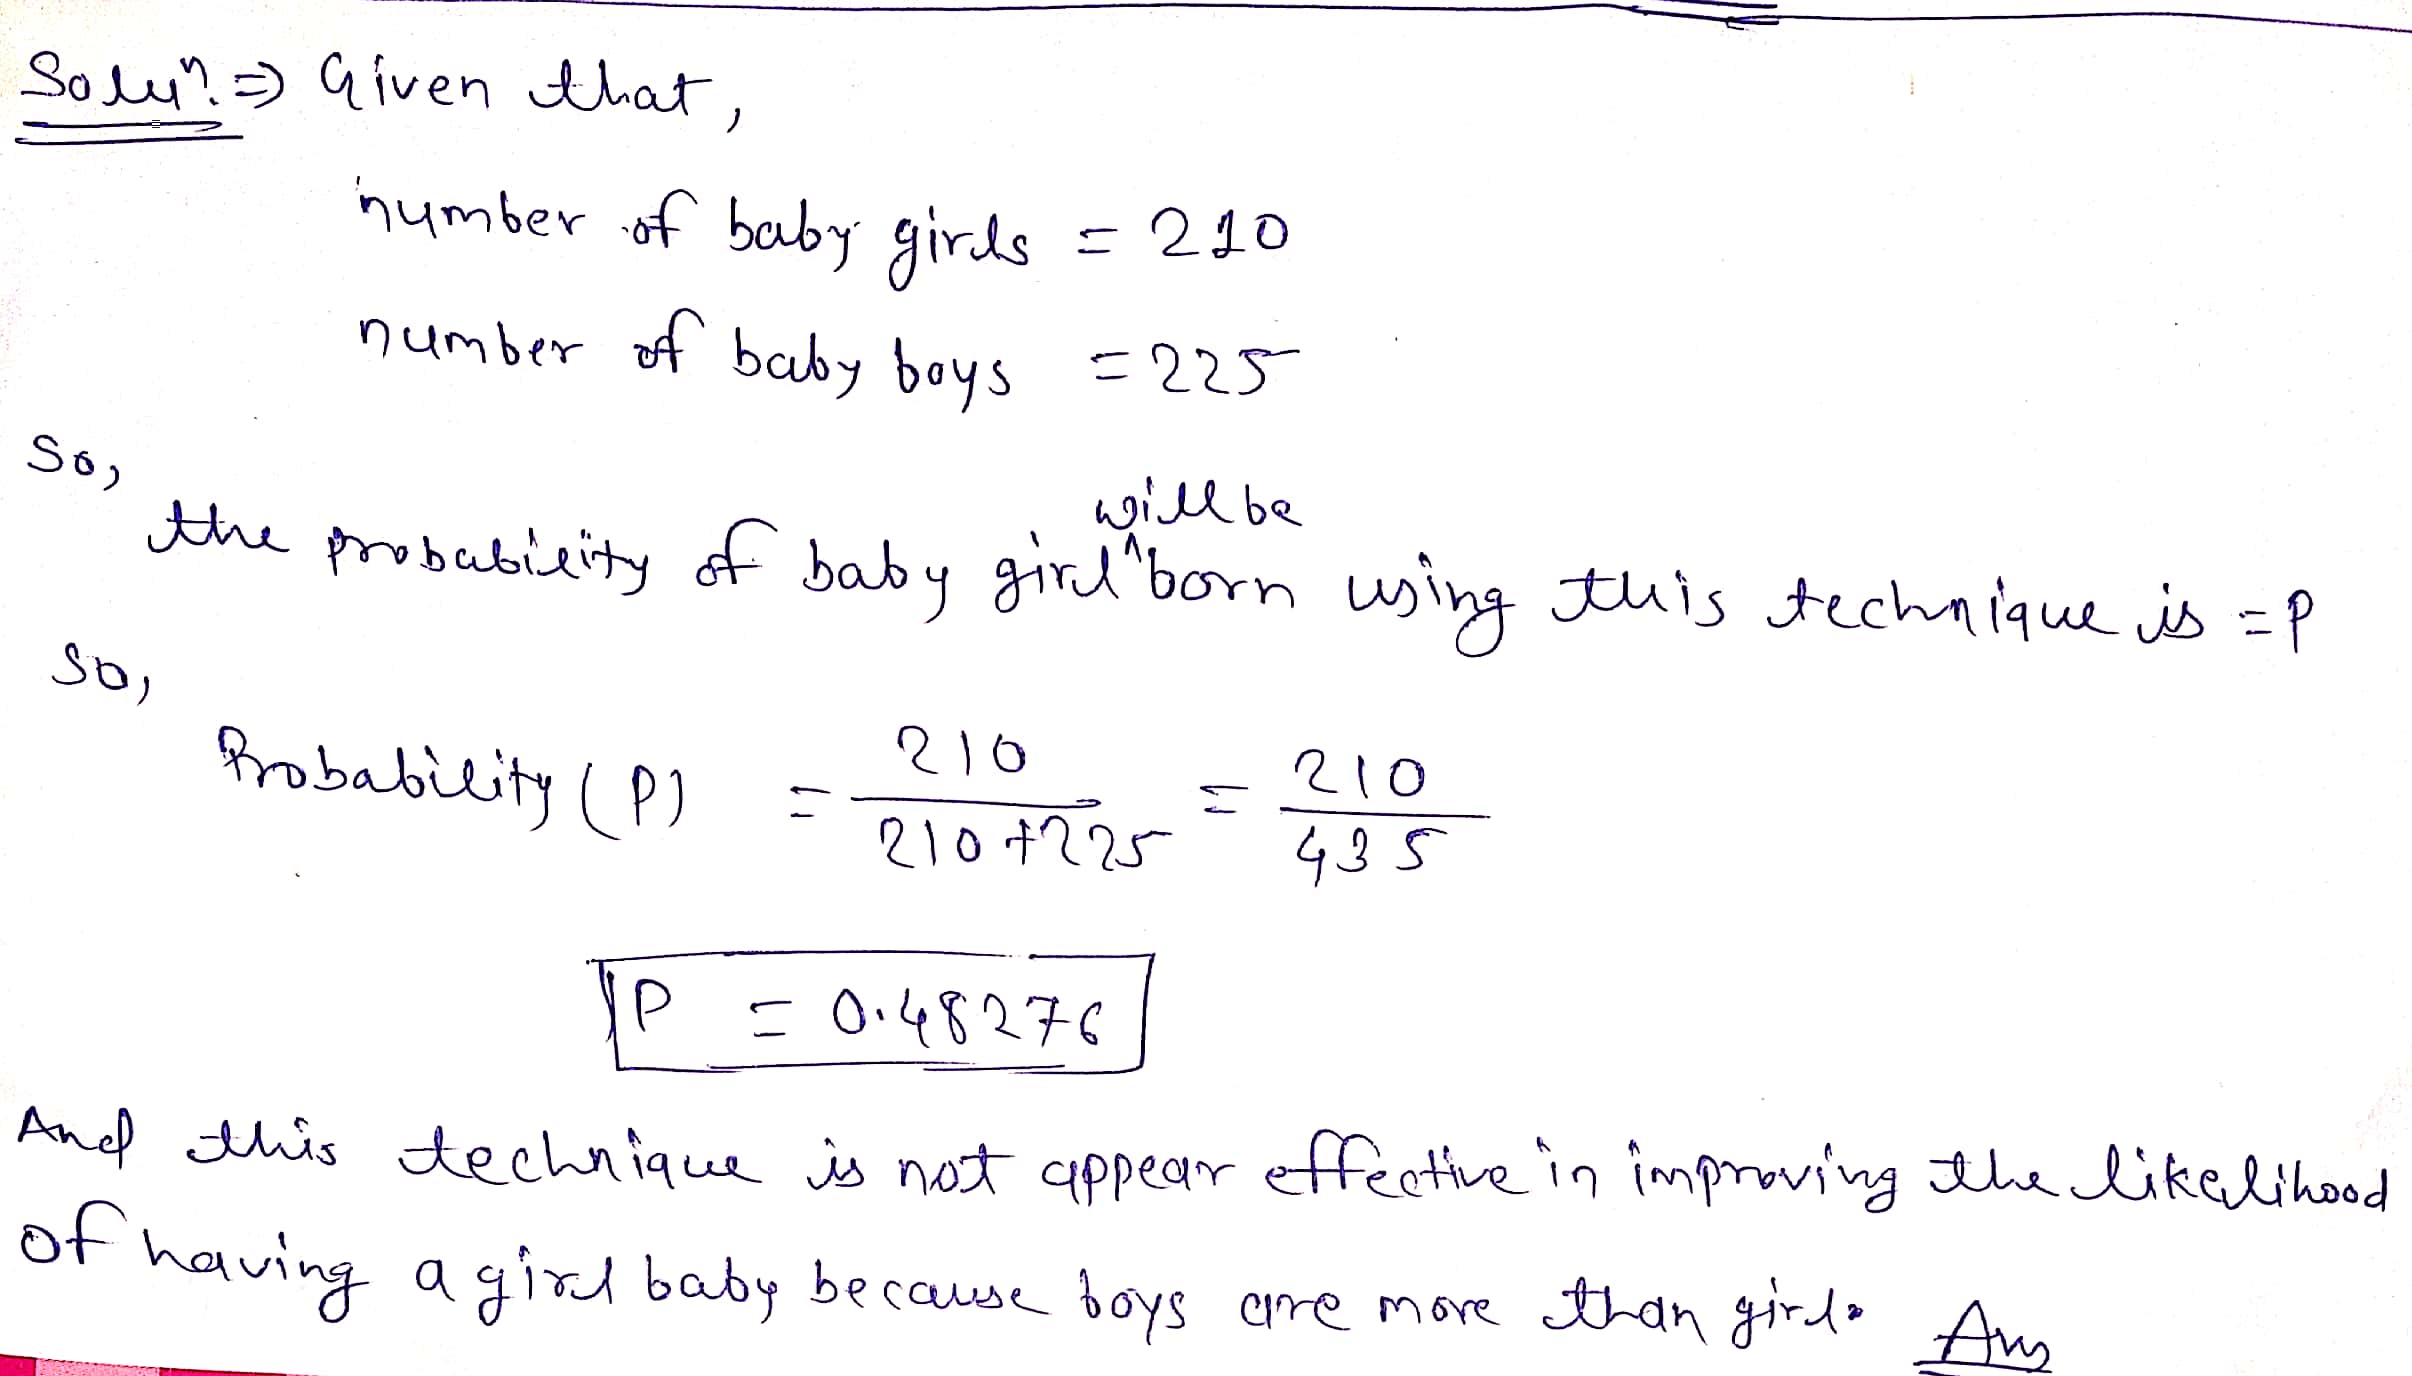 Soluⁿ. ⇒ Given that,
number of baby girls = 210
number of baby boys = 225
So,
will be
the probability of baby girl ^ born using this technique is = P
So,
Probability (P) = 210 / 210 + 225 = 210 / 435
P = 0.48276
And this technique is not appear effective in improving the likelihood
of having a girl baby because boys are more than girls Ans